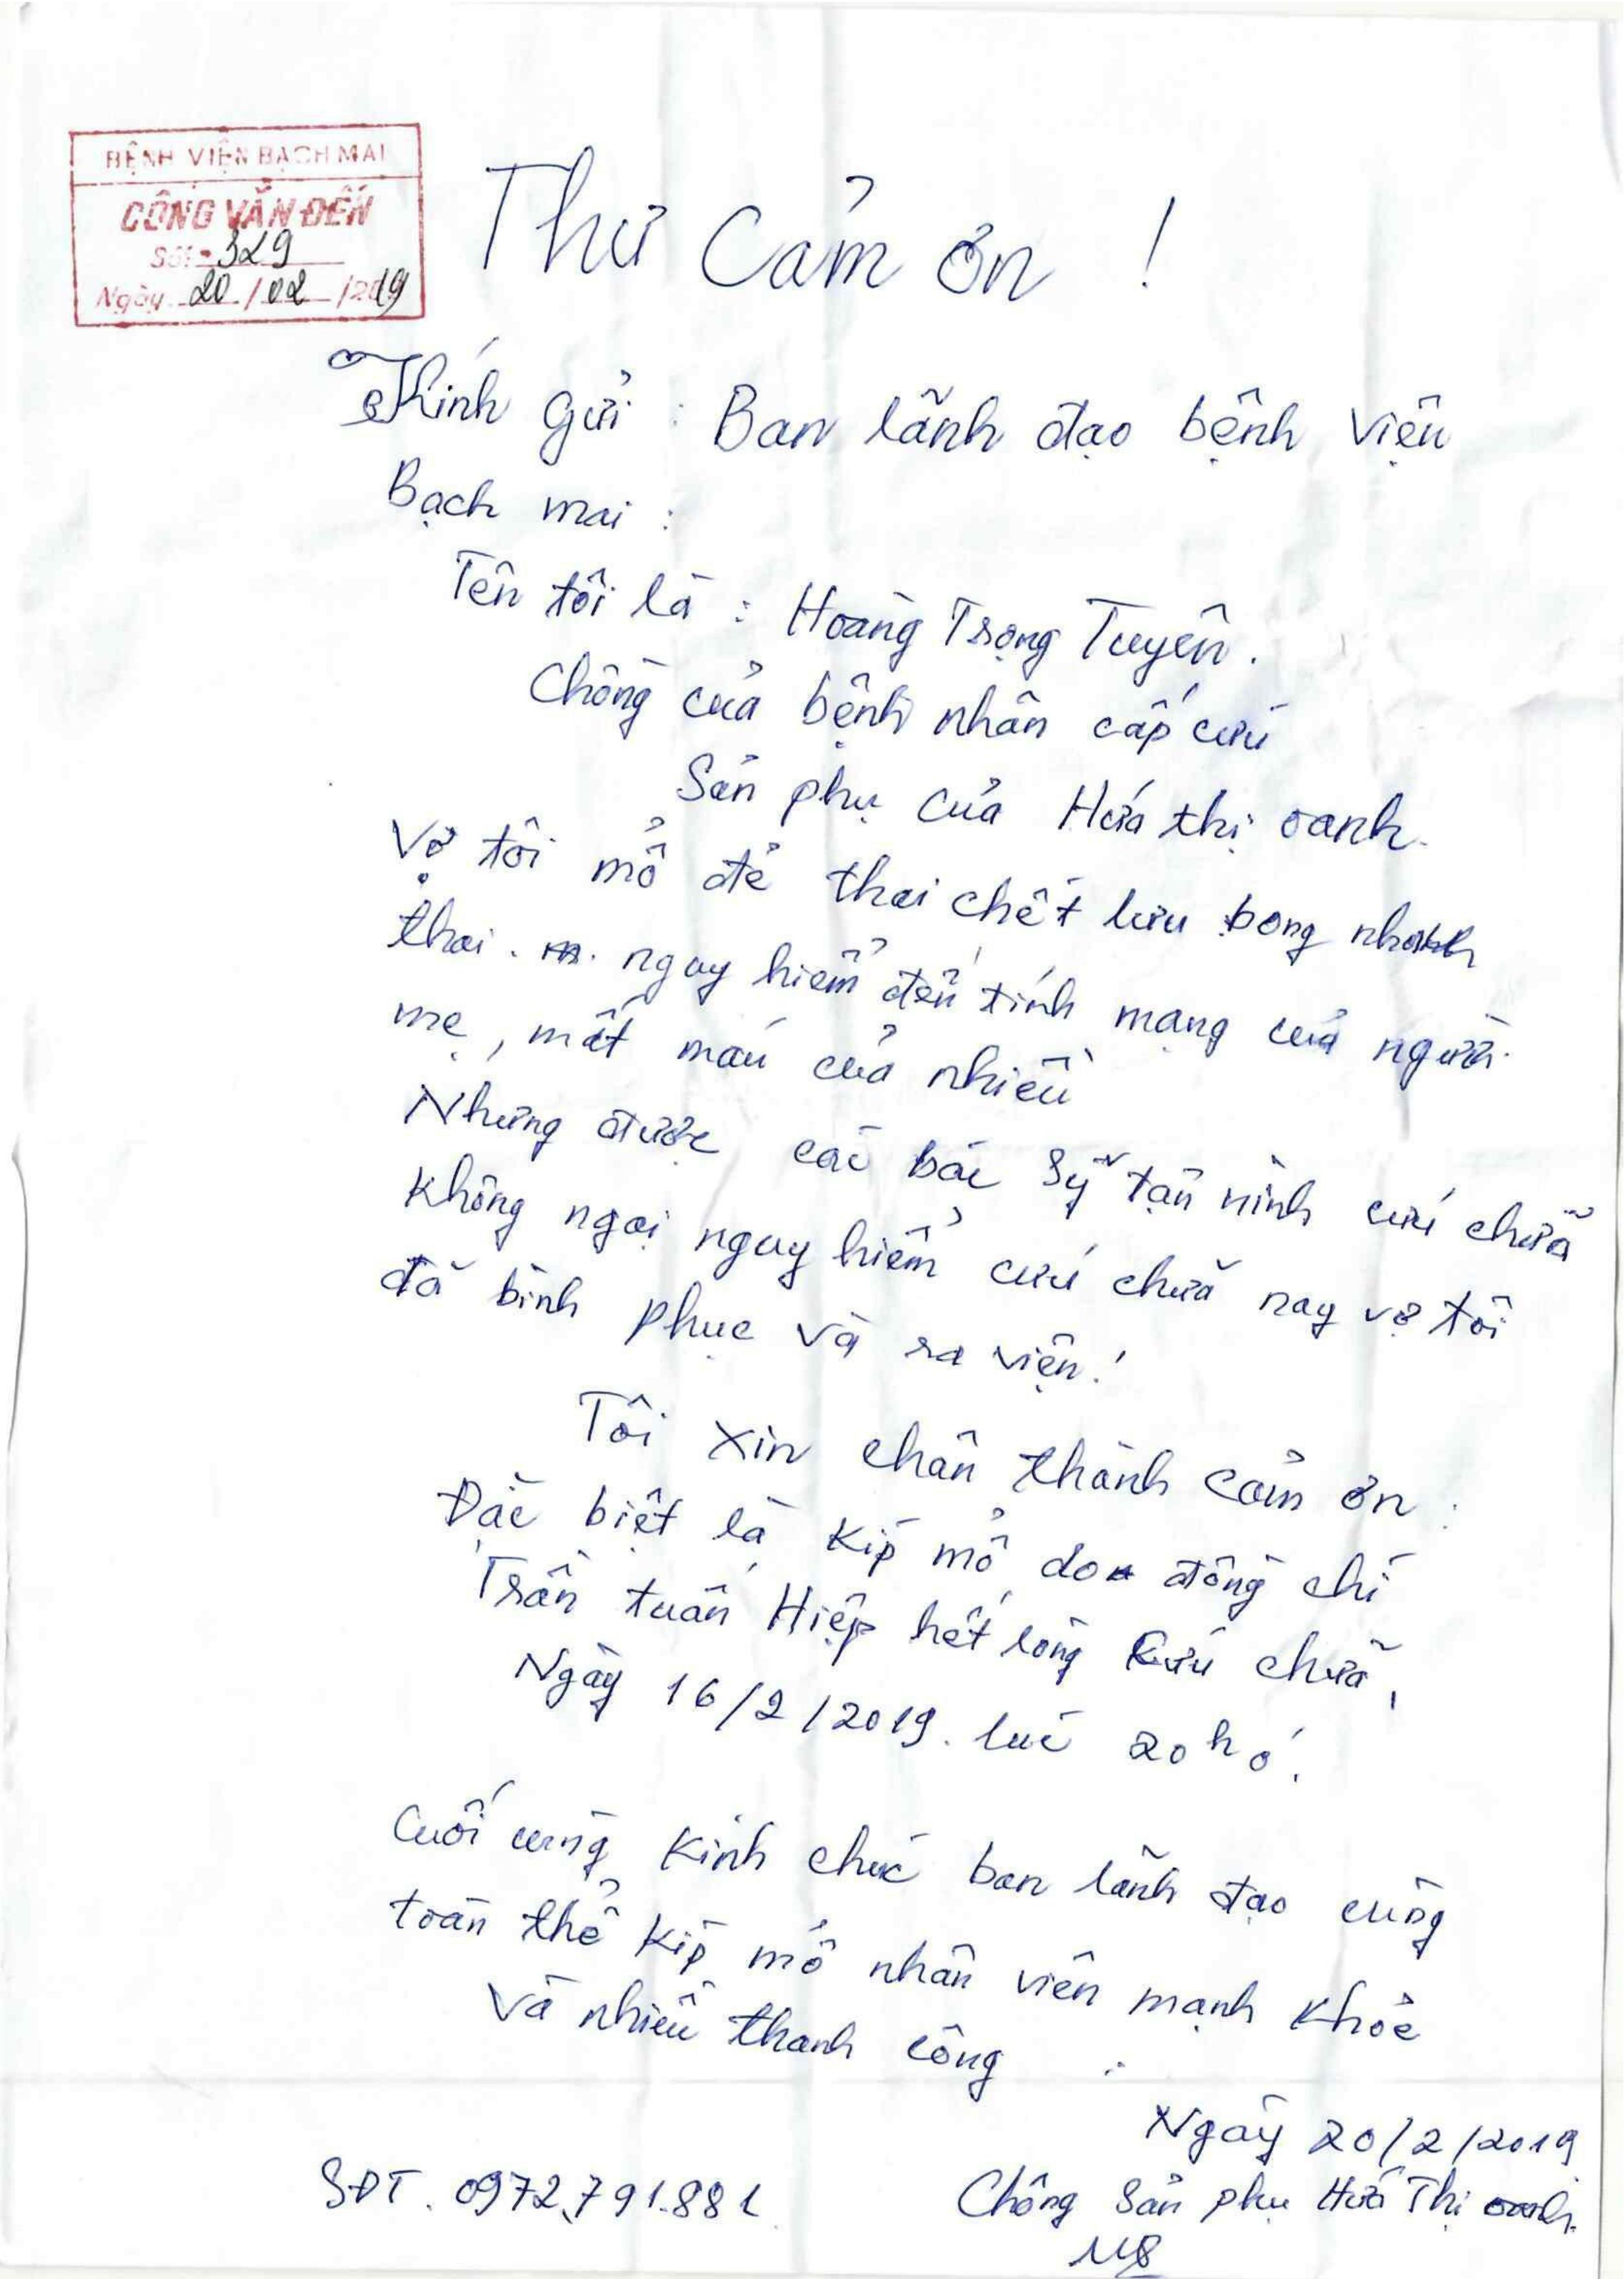 BỆNH VIỆN BẠCH MAI
CÔNG VĂN ĐẾN
Số: 329
Ngày 20/02/2019
Thư Cảm ơn !
Kính gửi : Ban lãnh đạo bệnh viện
Bạch mai :
Tên tôi là : Hoàng Trọng Tuyên.
Chồng của bệnh nhân cấp cứu
Sản phụ của Hứa thị oanh.
Vợ tôi mổ đẻ thai chết lưu bong nhanh
thai. nguy hiểm đến tính mạng của người
mẹ, mất máu của nhiều
Nhưng được các bác sỹ tận tình cứu chữa
không ngại nguy hiểm cứu chữa nay vợ tôi
đã bình phục và ra viện!
Tôi xin chân thành cảm ơn :
Đặc biệt là kíp mổ do đồng chí
Trần tuấn Hiệp hết lòng cứu chữa,
Ngày 16/2/2019. lúc 20h ó.
Cuối cùng kính chúc ban lãnh đạo cùng
toàn thể kíp mổ nhân viên mạnh khỏe
và nhiều thanh công :
Ngày 20/2/2019
SĐT. 0972.791.881
Chồng Sản phụ Hứa Thị oanh.